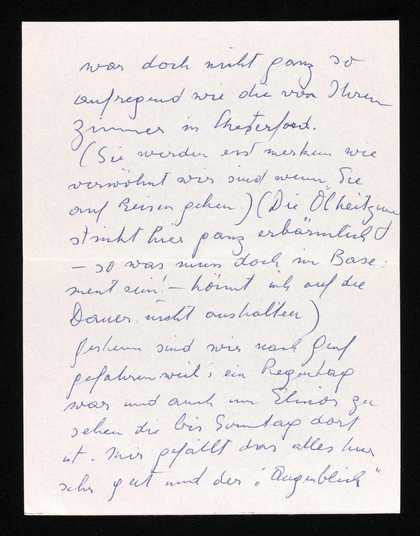 war doch nicht ganz so
aufregend wie die von Ihrem
Zimmer in Chesterford.
(Sie werden erst merken wie
verwöhnt wir sind wenn Sie
auf Reisen gehen.) (Die Ölheitzung
stinkt hier ganz erbärmlich
– so was muss doch im Base-
ment sein! – könnt ich auf die
Dauer nicht aushalten)
Gestern sind wir nach Genf
gefahren weil's ein Regentag
war und auch um zu
sehen die bis Sonntag dort
ist. Mir gefällt das alles hier
sehr gut und der "Augenblick"